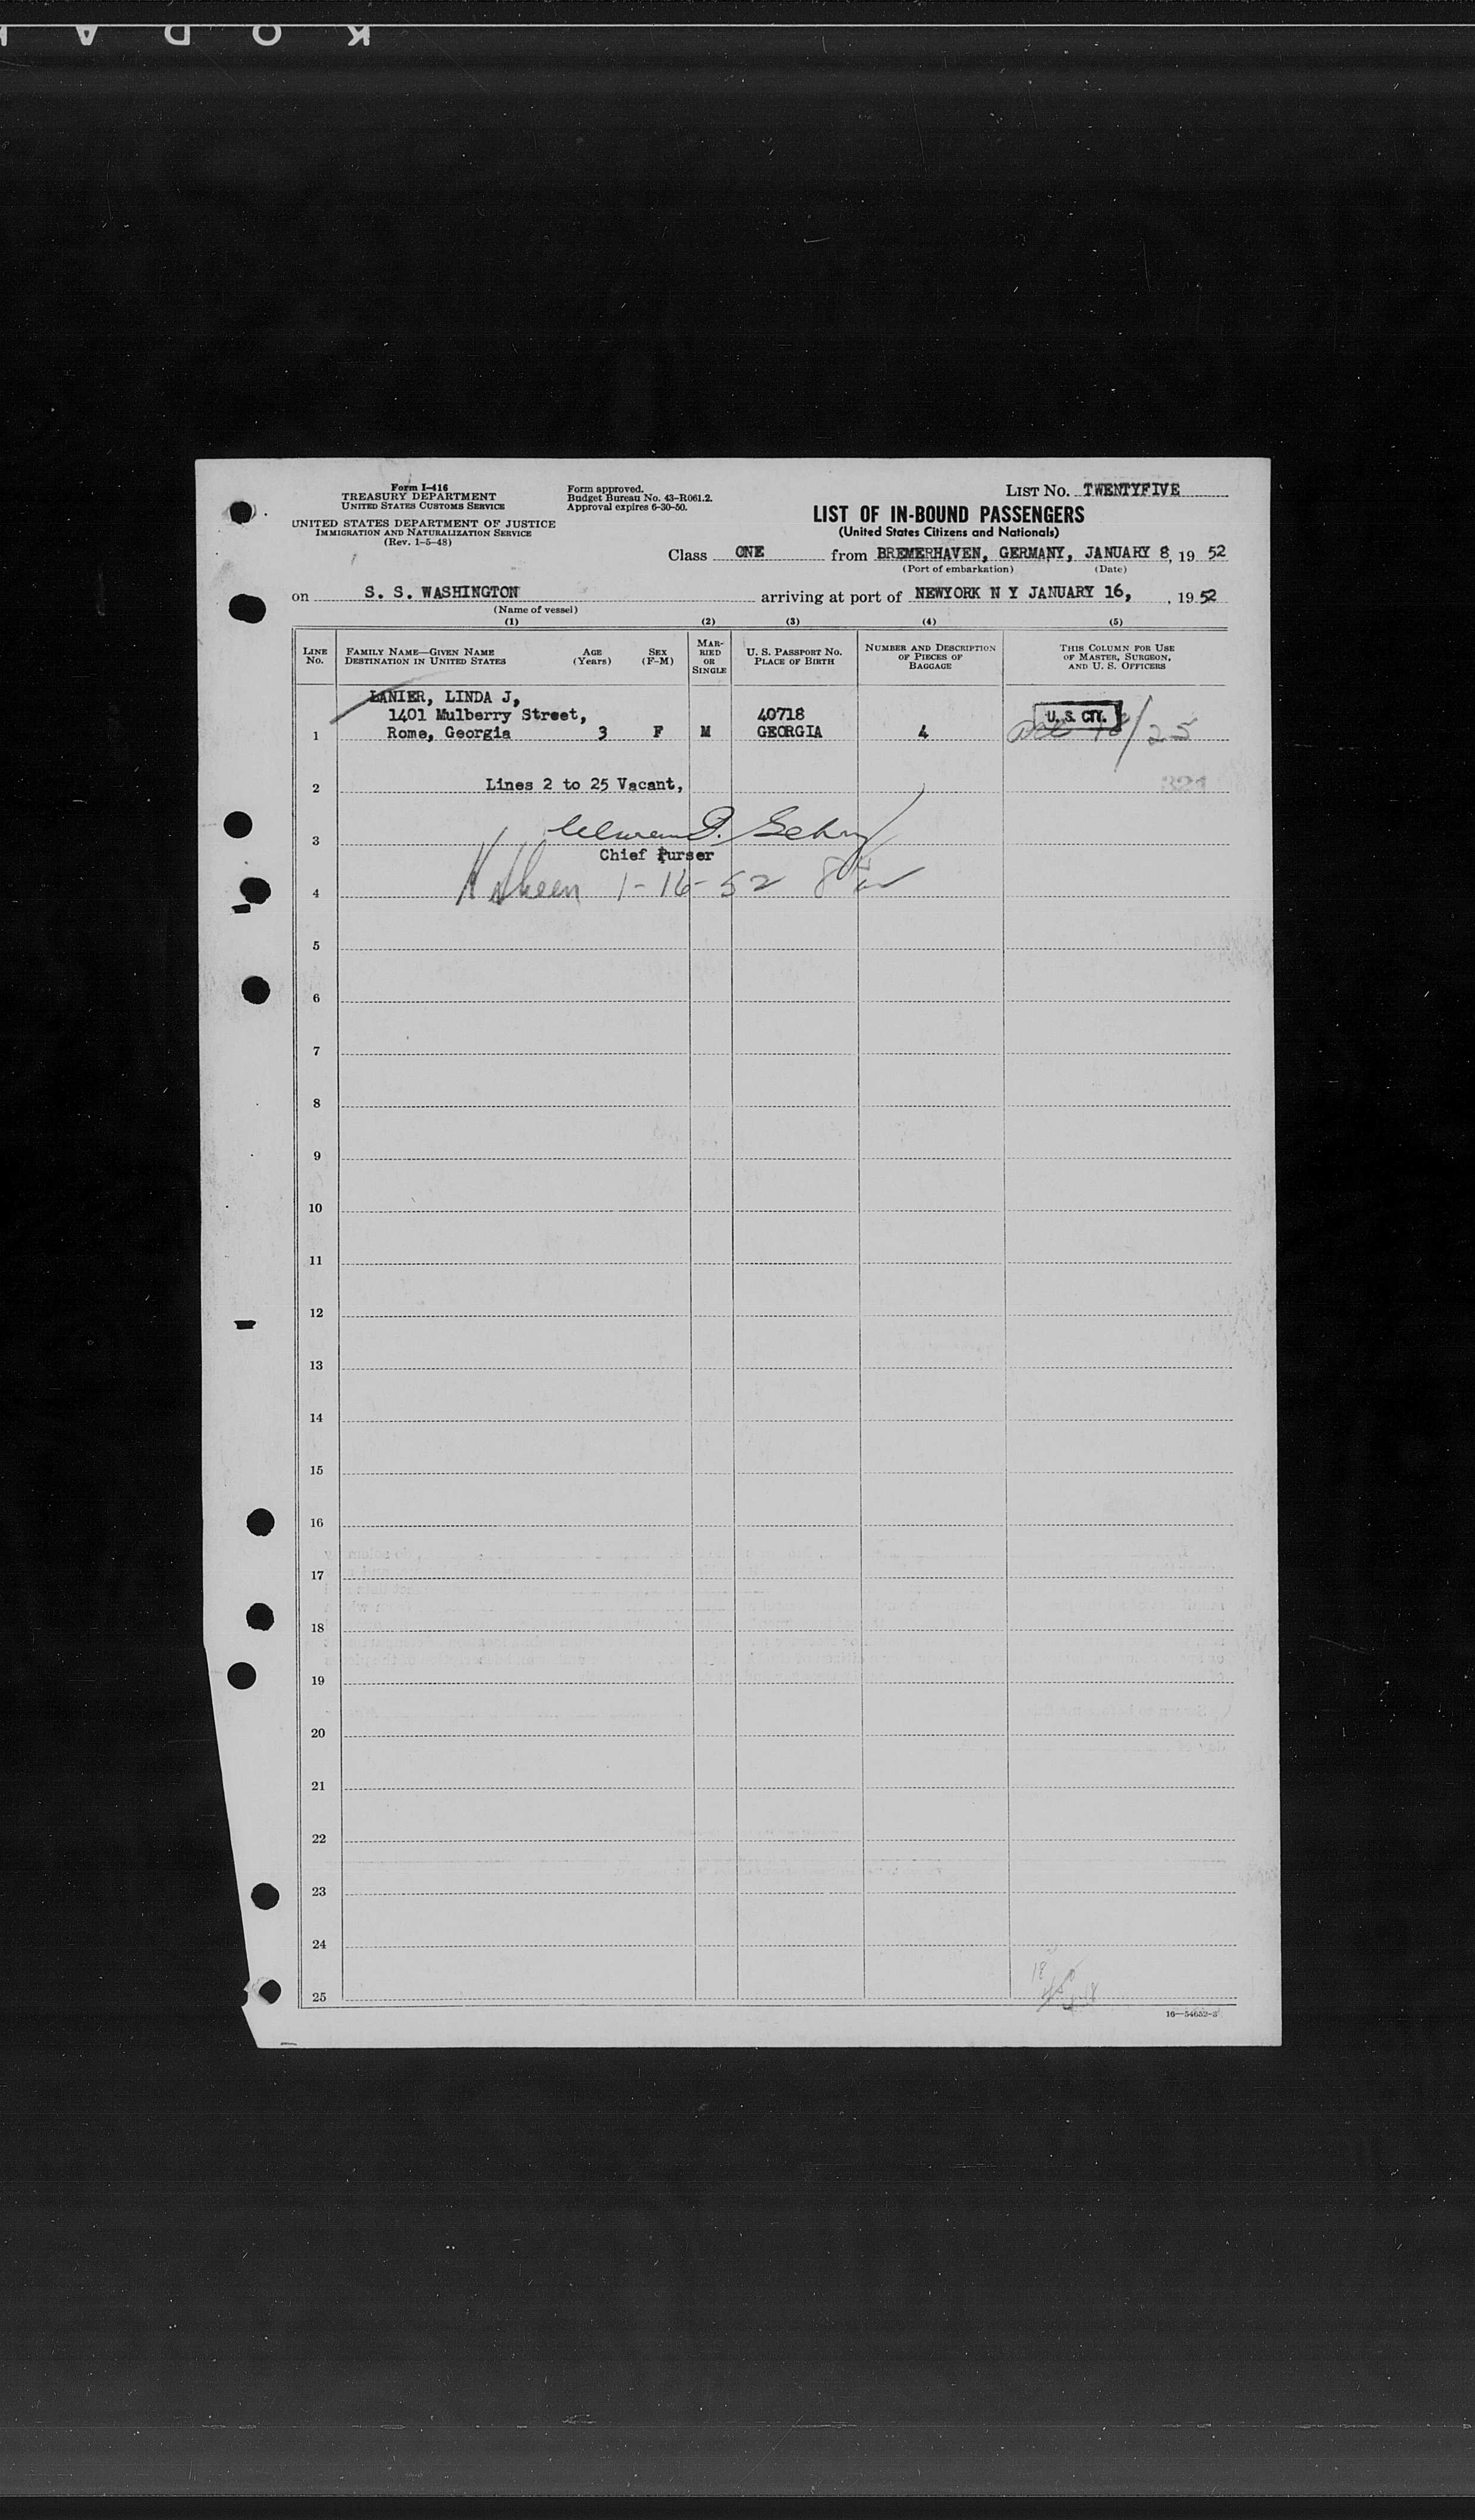 KODAK
Form I-416
TREASURY DEPARTMENT
UNITED STATES CUSTOMS SERVICE
UNITED STATES DEPARTMENT OF JUSTICE
IMMIGRATION AND NATURALIZATION SERVICE
(Rev. 1-5-48)
Form approved.
Budget Bureau No. 43-R061.2.
Approval expires 6-30-50.
LIST NO. TWENTYFIVE
LIST OF IN-BOUND PASSENGERS
(United States Citizens and Nationals)
Class ONE from BREMERHAVEN, GERMANY, JANUARY 8, 19 52
(Port of embarkation) (Date)
on S. S. WASHINGTON arriving at port of NEWYORK N Y JANUARY 16, , 19 52
(Name of vessel)
(1) (2) (3) (4) (5)
LINE NO. FAMILY NAME—GIVEN NAME DESTINATION IN UNITED STATES AGE (Years) SEX (F-M) MARRIED OR SINGLE U. S. PASSPORT NO. PLACE OF BIRTH NUMBER AND DESCRIPTION OF PIECES OF BAGGAGE THIS COLUMN FOR USE OF MASTER, SURGEON, AND U. S. OFFICERS
LANIER, LINDA J,
1401 Mulberry Street, 40718 U. S. CIT.
1 Rome, Georgia 3 F M GEORGIA 4 /25
2 Lines 2 to 25 Vacant, 321
3
Chief Purser
4 1-16-52
5
6
7
8
9
10
11
12
13
14
15
16
17
18
19
20
21
22
23
24
25
16—54652-3